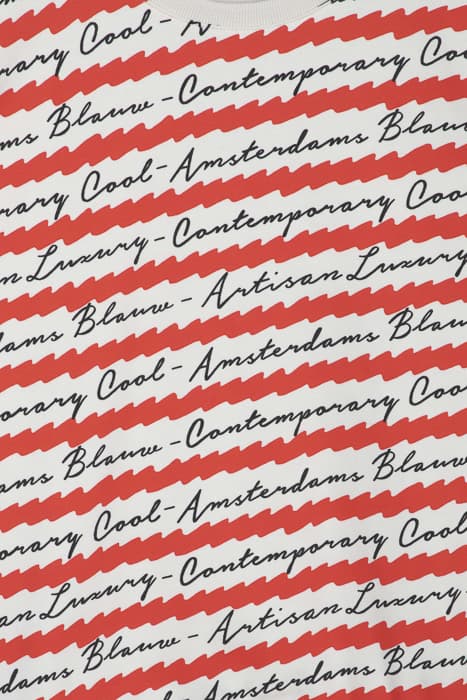 rary Cool-
ms Blauw - Contemporary Coo
rary Cool-Amsterdams Blauw
an Luxury - Contemporary Coo
dams Blauw - Artisan Luxury
orary Cool - Amsterdams Blauw
ams Blauw - Contemporary Coo
orary Cool-Amsterdams Blauw
an Luxury - Contemporary Cool
dams Blauw - Artisan Luxury -
Amsterdams Blauw